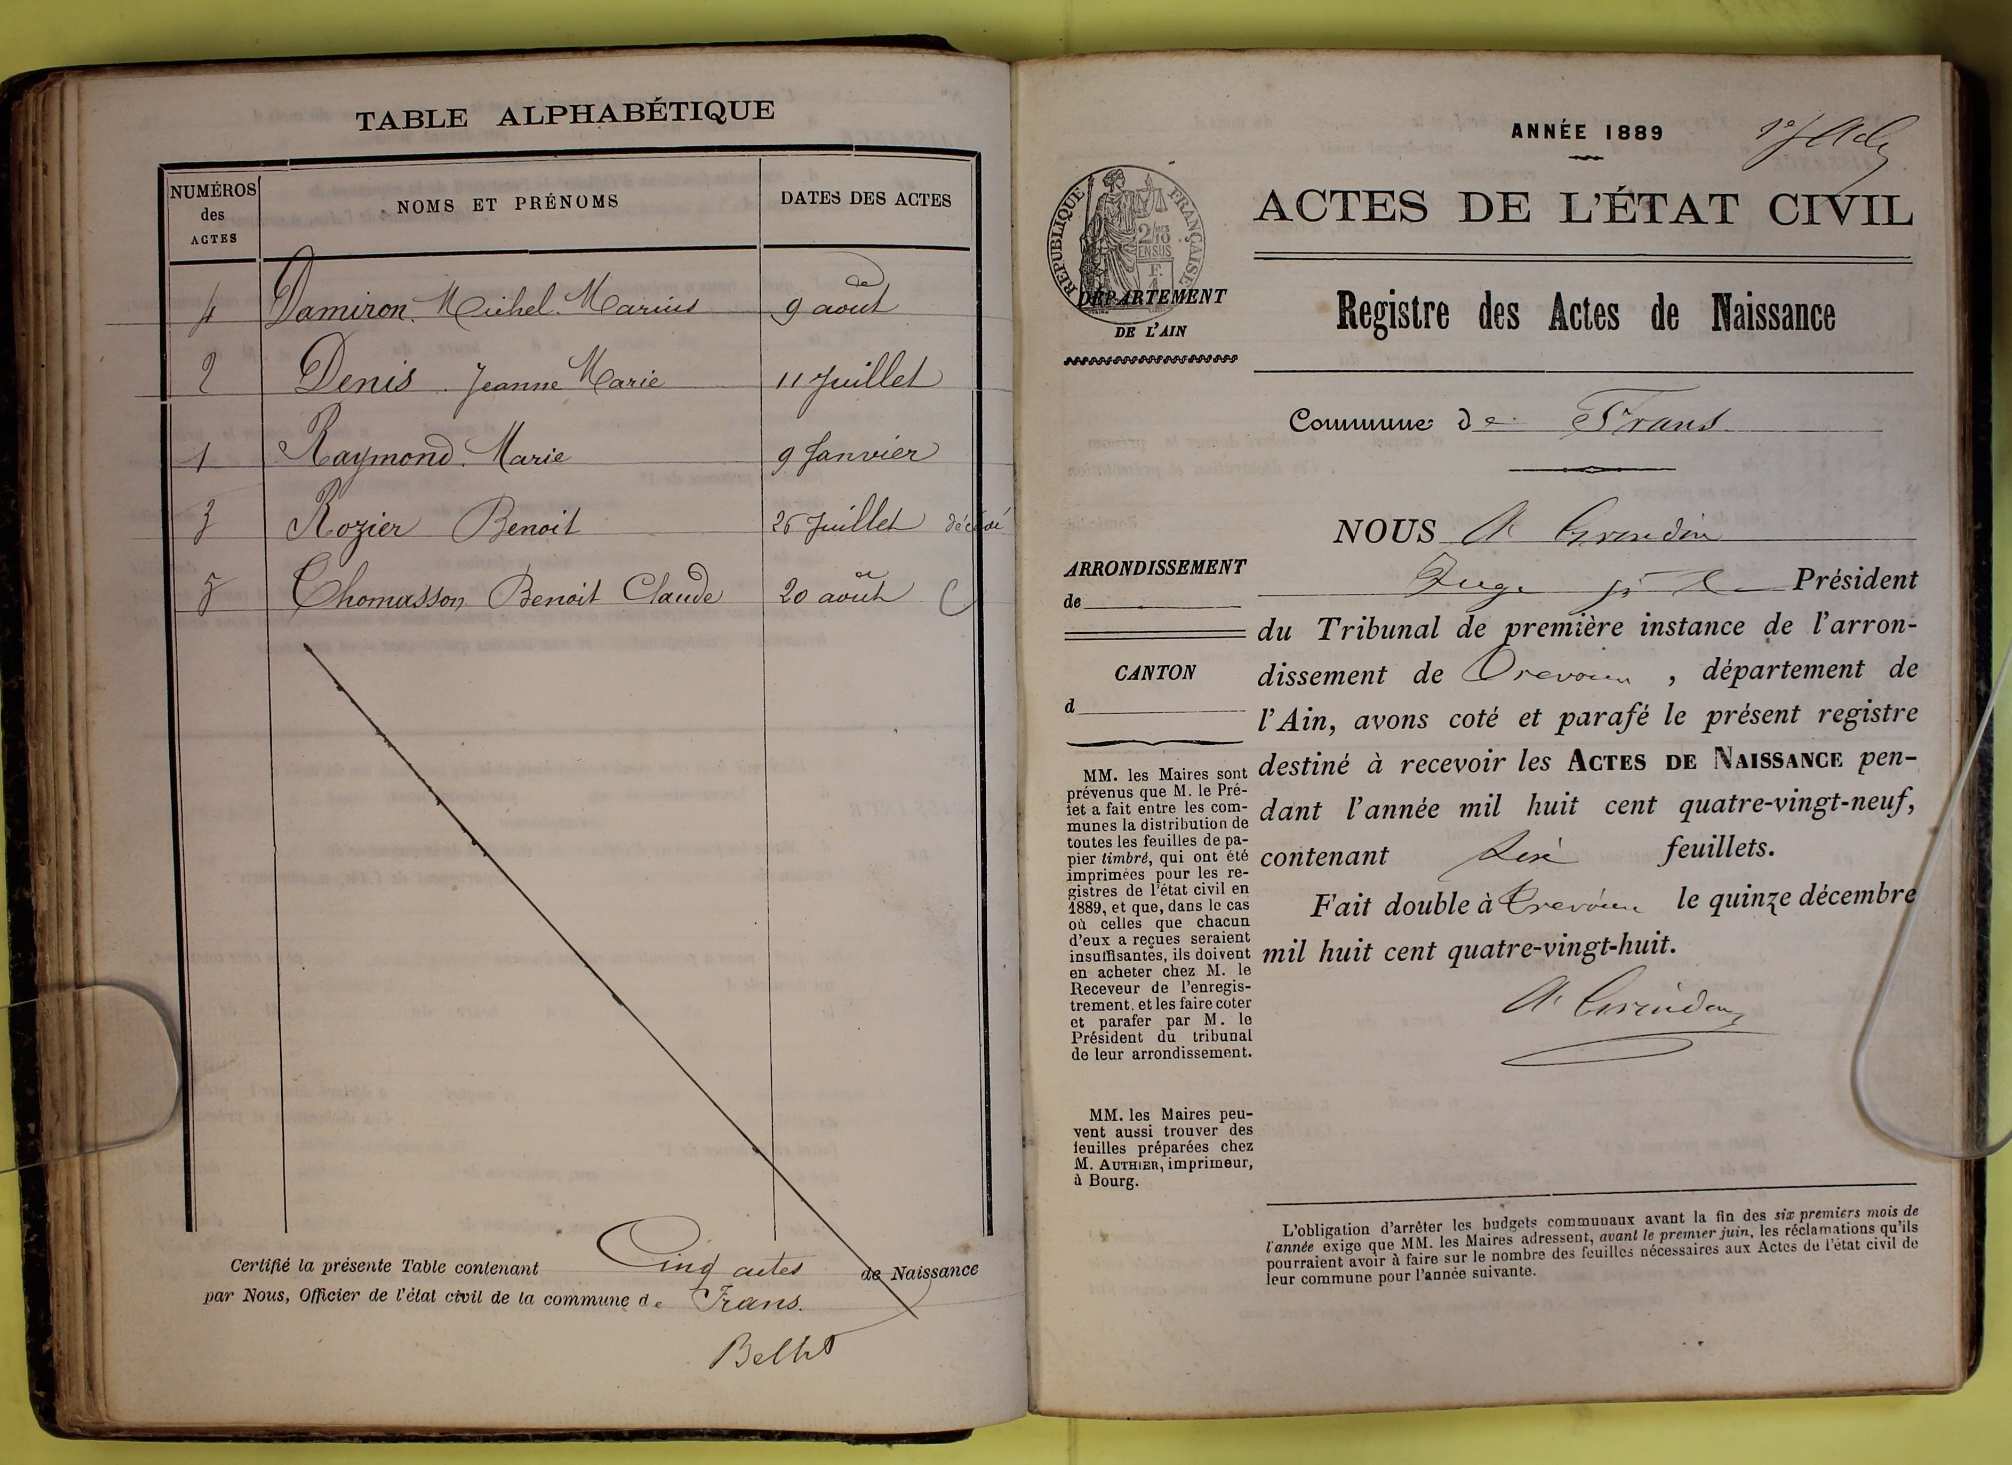 TABLE ALPHABÉTIQUE
NUMÉROS des ACTES
NOMS ET PRÉNOMS
DATES DES ACTES
4 Damiron Michel Marius 9 août
2 Denis Jeanne Marie 11 Juillet
1 Raymond Marie 9 Janvier
3 Rozier Benoit 26 Juillet décédé
5 Thomasson Benoit Claude 20 août
Certifié la présente Table contenant Cinq actes de Naissance
par Nous, Officier de l'état civil de la commune de Frans.
ANNÉE 1889
RÉPUBLIQUE FRANÇAISE
ACTES DE L'ÉTAT CIVIL
DÉPARTEMENT
DE L'AIN
Registre des Actes de Naissance
Commune de Frans
NOUS
Juge Président
du Tribunal de première instance de l'arron-
dissement de Trévoux, département de
l'Ain, avons coté et parafé le présent registre
destiné à recevoir les ACTES DE NAISSANCE pen-
dant l'année mil huit cent quatre-vingt-neuf,
contenant feuillets.
Fait double à Trévoux le quinze décembre
mil huit cent quatre-vingt-huit.
ARRONDISSEMENT
de
CANTON
d
MM. les Maires sont
prévenus que M. le Pré-
fet a fait entre les com-
munes la distribution de
toutes les feuilles de pa-
pier timbré, qui ont été
imprimées pour les re-
gistres de l'état civil en
1889, et que, dans le cas
où celles que chacun
d'eux a reçues seraient
insuffisantes, ils doivent
en acheter chez M. le
Receveur de l'enregis-
trement, et les faire coter
et parafer par M. le
Président du tribunal
de leur arrondissement.
MM. les Maires peu-
vent aussi trouver des
feuilles préparées chez
M. AUTHIER, imprimeur,
à Bourg.
L'obligation d'arrêter les budgets communaux avant la fin des six premiers mois de
l'année exige que MM. les Maires adressent, avant le premier juin, les réclamations qu'ils
pourraient avoir à faire sur le nombre des feuilles nécessaires aux Actes de l'état civil de
leur commune pour l'année suivante.